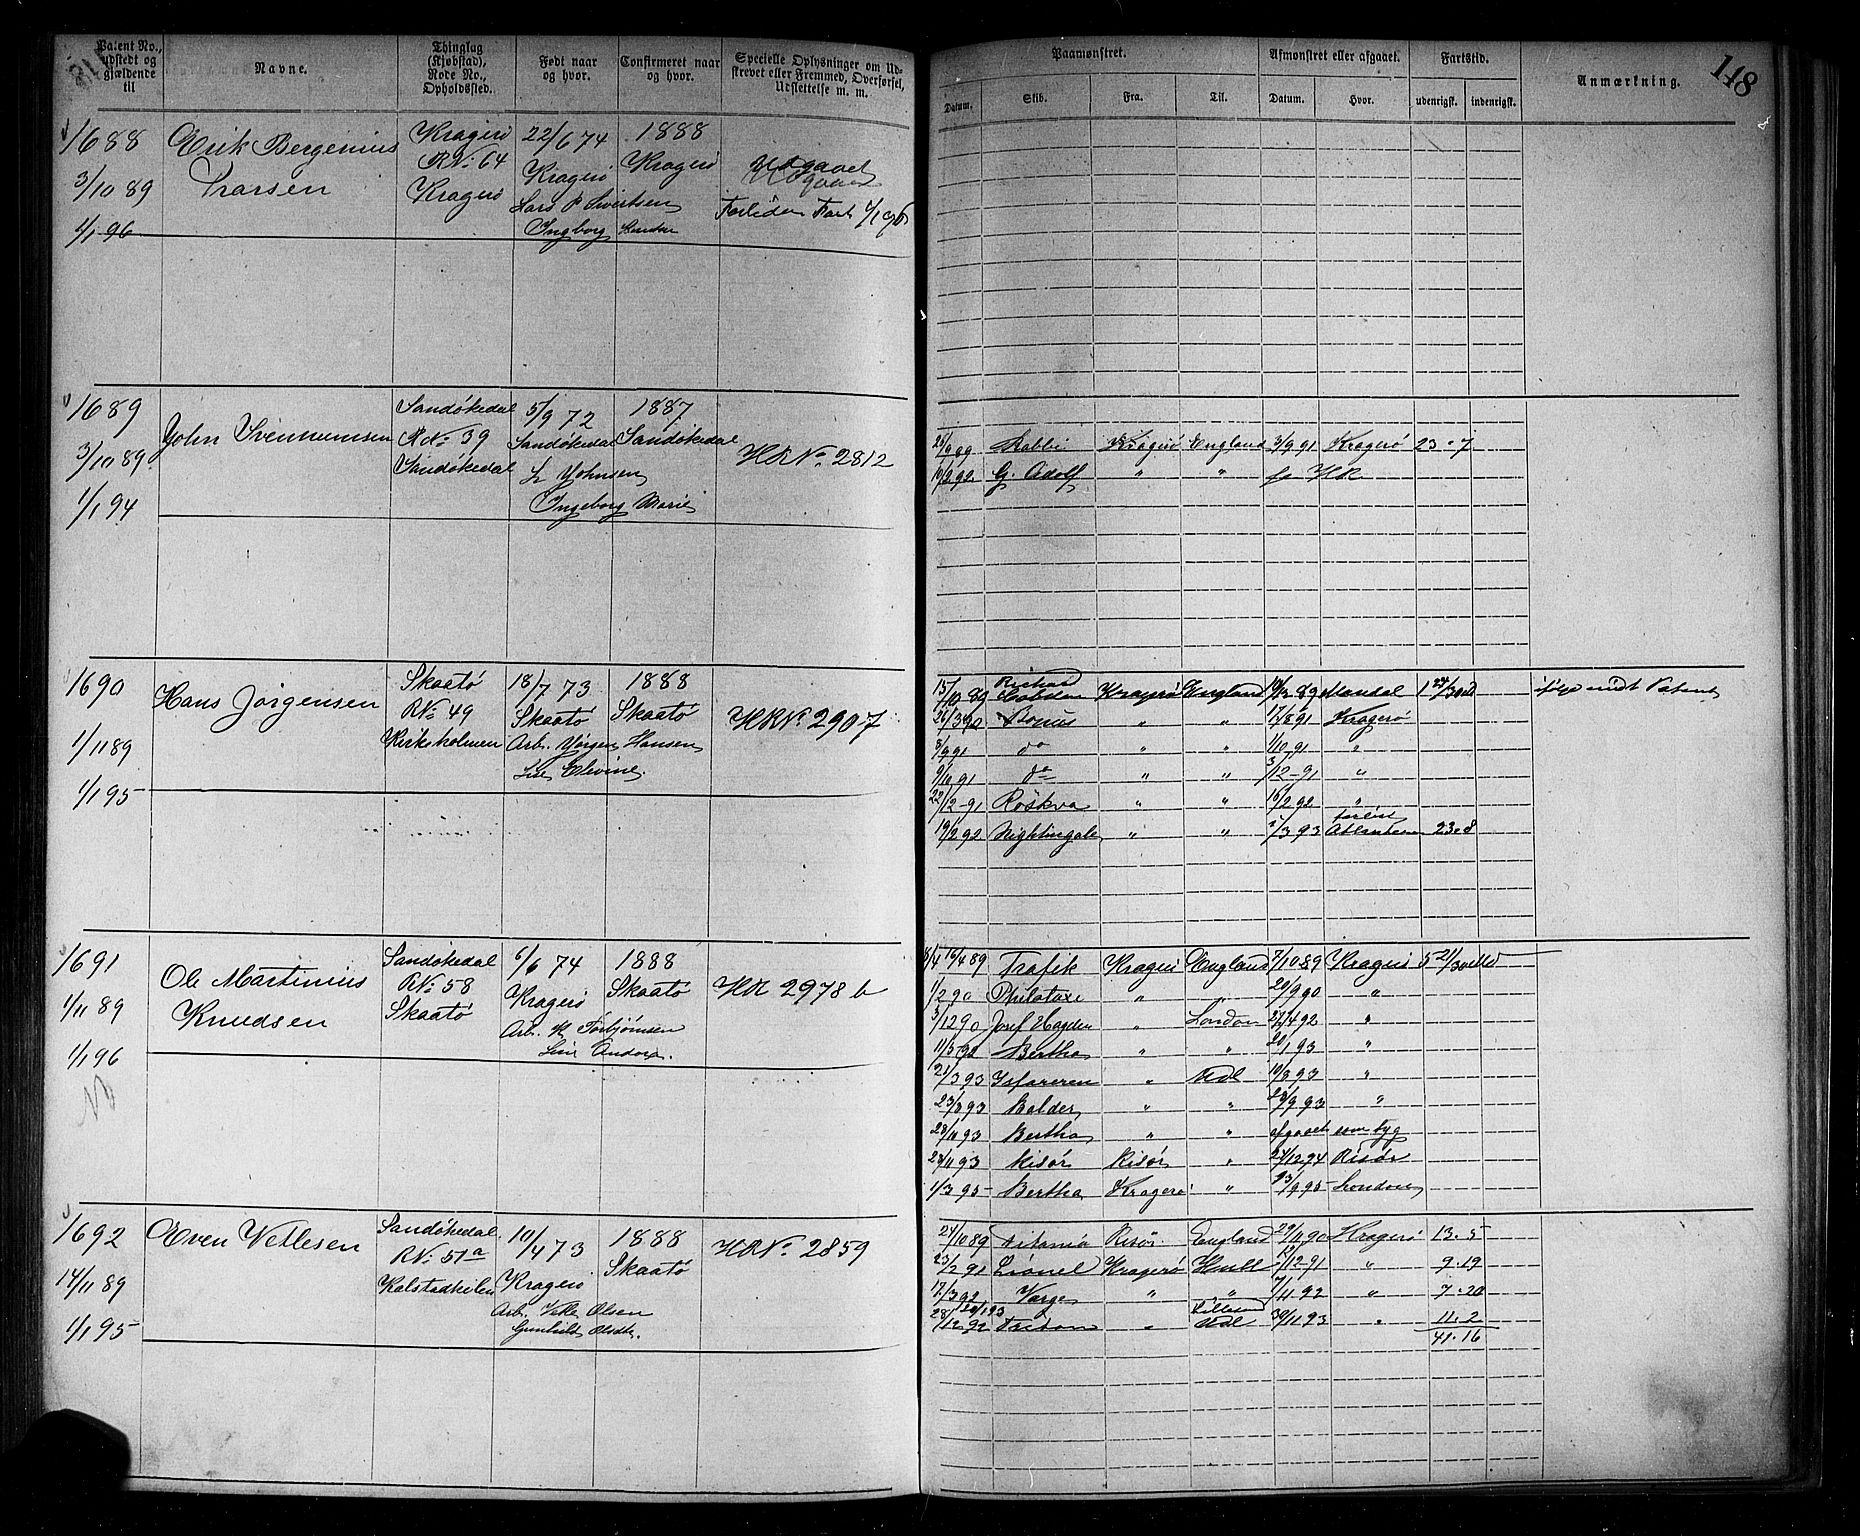 Patent No.,
udstedt og
gjældende
til
Navne.
Thinglag
(Kjøbstad),
Rode No.,
Opholdssted.
Født naar
og hvor.
Confirmeret naar
og hvor.
Specielle Oplysninger om Ud-
skrevet eller Fremmed, Overførsel,
Udslettelse m. m.
1688
3/10 89
1/1 96
Erik Bergenius
Larsen
Kragerö
R№ 64
Kragerö
22/6 74
Kragerö
Lars P Sivertsen
Ingborg
1888
Kragerö
Udgaaet
Forliden Fart 1/1 96
1689
3/10 89
1/1 94
John Svennumsen
Sandökedal
R№ 39
Sandökedal
5/9 72
Sandökedal
S. Johnsen
Ingeborg Marie
1887
Sandökedal
HR№ 2812
1690
1/11 89
1/1 95
Hans Jörgensen
Skaatö
R№ 49
Kirkeholmen
18/7 73
Skaatö
Arb. Jörgen Hansen
Elevine.
1888
Skaatö
HR№ 2907
1691
1/11 89
1/1 96
Ole Martinius
Knudsen
Sandökedal
R№ 58
Skaatö
6/6 74
Kragerö
Arb. K Torbjörnsen
1888
Skaatö
HR 2978 b
1692
14/11 89
1/1 95
Even Vetlesen
Sandökedal
R№ 51a
Kalstadkilen
10/4 73
Kragerö
Arb. Vetle Olsen
Gunhild Olsdtr.
1888
Skaatö
HR№ 2859
118
Paamønstret.
Afmønstret eller afgaaet.
Fartstid.
Anmærkning.
Datum.
Skib.
Fra.
Til.
Datum.
Hvor.
udenrigst.
indenrigst.
25/9 89 Rabbi Kragerö England 3/9 91 Kragerö 23-7
10/2 92 G. Adolf " " HR
15/10 89 Richard Cobden Kragerö England 89 Mandal 1 24/30
26/3 90 Bonus " " 17/8 91 Kragerö
8/9 91 do " " 1/10 91 "
9/10 91 do " " 3/12-91 "
22/12-91 Röskva " " 15/2 92 "
19/2 92 Nightingale " " 1/3 93 forlist Atlanteren 23.8
16/4 89 Trafik Kragerö England 7/10 89 Kragerö 5 21/30
1/2 90 Philotaxe " 20/9 90 "
3/12 90 Josef Hayden " London 27/4 92 "
11/5 92 Bertha " " 20/1 93 "
21/3 93 Isfareren " Udl 10/8 93 "
23/8 93 Balder " " 28/9 93 "
28/11 93 Bertha " " afgaaet som syg
28/11 93 Risör Risör " 24/12 94 Risör
1/3 95 Bertha Kragerö " 23/9 95 London
24/10 89 Titania Risör England 29/11 90 Kragerö 13.5
23/2 91 Lionel Kragerö Hull 12/12-91 " 9.19
17/3 92 Varge " " 7/11 92 " 7.20
28/12 92 Triton " Udl 30/11 93 " 11.2
41.16